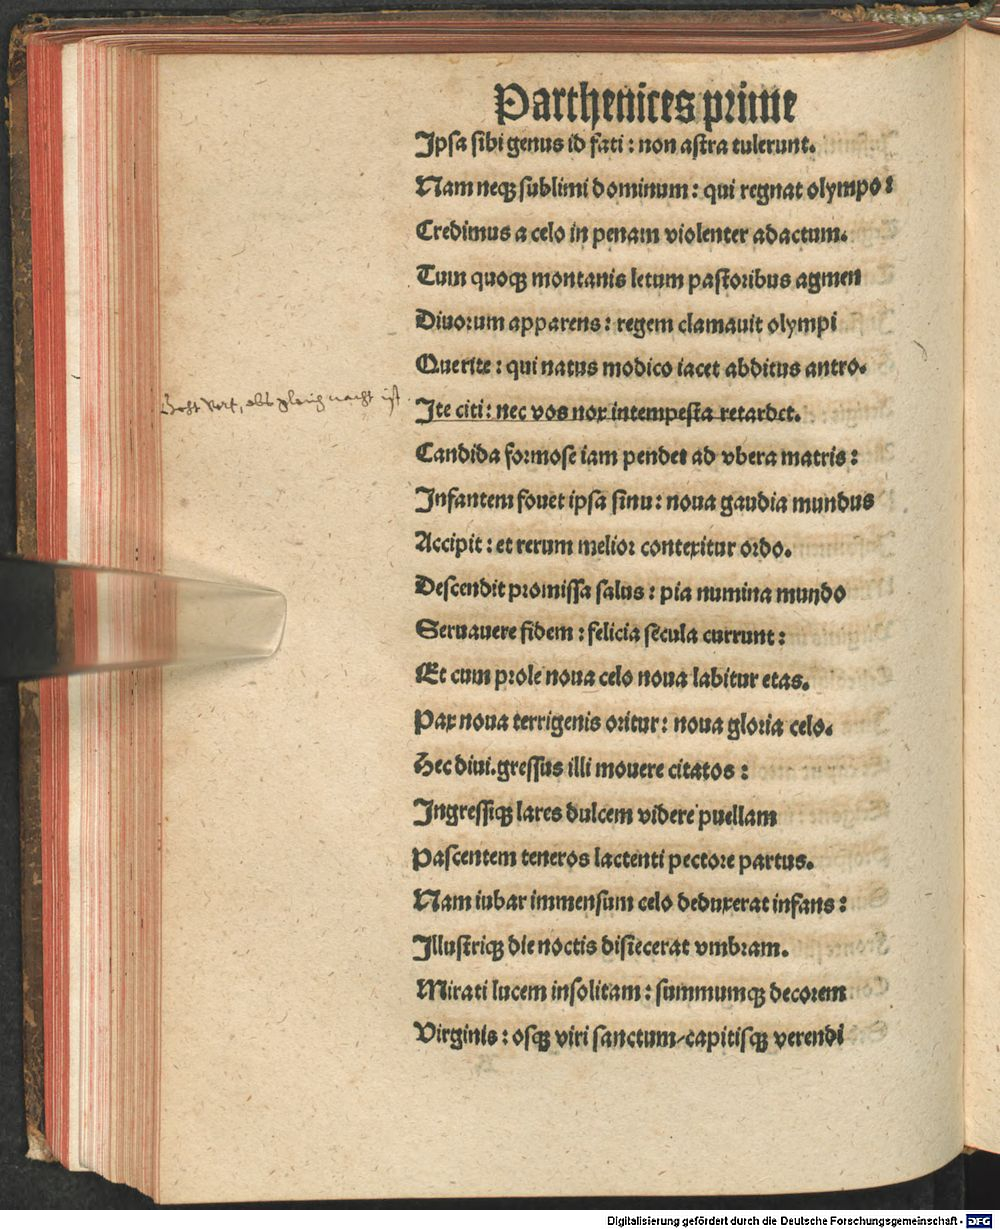 Parthenices prime
Ipsa sibi genus id fati : non astra tulerunt.
Nam neqꝫ sublimi dominum : qui regnat olympo :
Credimus a celo in penam violenter adactum.
Tum quoqꝫ montanis letum pastoribus agmen
Diuorum apparens : regem clamauit olympi
Querite : qui natus modico iacet abditus antro.
Ite citi : nec vos nox intempesta retardet.
Candida formose iam pendet ad vbera matris :
Infantem fouet ipsa sinu : noua gaudia mundus
Accipit : et rerum melior contexitur ordo.
Descendit promissa salus : pia numina mundo
Seruauere fidem : felicia secula currunt :
Et cum prole noua celo noua labitur etas.
Pax noua terrigenis oritur : noua gloria celo.
Hec diui.gressus illi mouere citatos :
Ingressiqꝫ lares dulcem videre puellam
Pascentem teneros lactenti pectore partus.
Nam iubar immensum celo deduxerat infans :
Illustriqꝫ die noctis disiecerat vmbram.
Mirati lucem insolitam : summumqꝫ decorem
Virginis : osqꝫ viri sanctum/capitisqꝫ verendi
obs gleich nacht ist
Digitalisierung gefördert durch die Deutsche Forschungsgemeinschaft - DFG